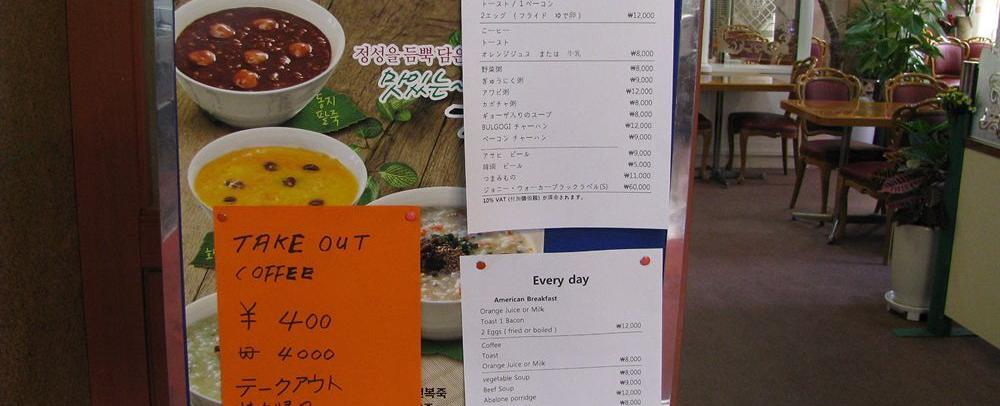 정성을 듬뿍 담은
맛있는
동지
팥죽
TAKE OUT
COFFEE
¥ 400
₩ 4000
テークアウト
トースト / 1ベーコン
2エッグ (フライド ゆで卵) ₩12,000
こーヒー
トースト
オレンジジュス または 牛乳 ₩8,000
野菜粥 ₩8,000
ぎゅうにく粥 ₩9,000
アワビ粥 ₩12,000
カボチャ粥 ₩8,000
ギョーザ入りのスープ ₩8,000
BULGOGI チャーハン ₩12,000
ベーコン チャーハン ₩9,000
アサヒ ビール ₩9,000
韓国 ビール ₩5,000
つまみもの ₩11,000
ジョニー・ウォーカーブラックラベル(S) ₩60,000
10% VAT (付加価値税) が課金されます。
Every day
American Breakfast
Orange Juice or Milk
Toast 1 Bacon
2 Eggs ( fried or boiled ) ₩12,000
Coffee
Toast
Orange Juice or Milk ₩8,000
vegetable Soup ₩8,000
Beef Soup ₩9,000
Abalone porridge ₩12,000
₩8,000
전복죽